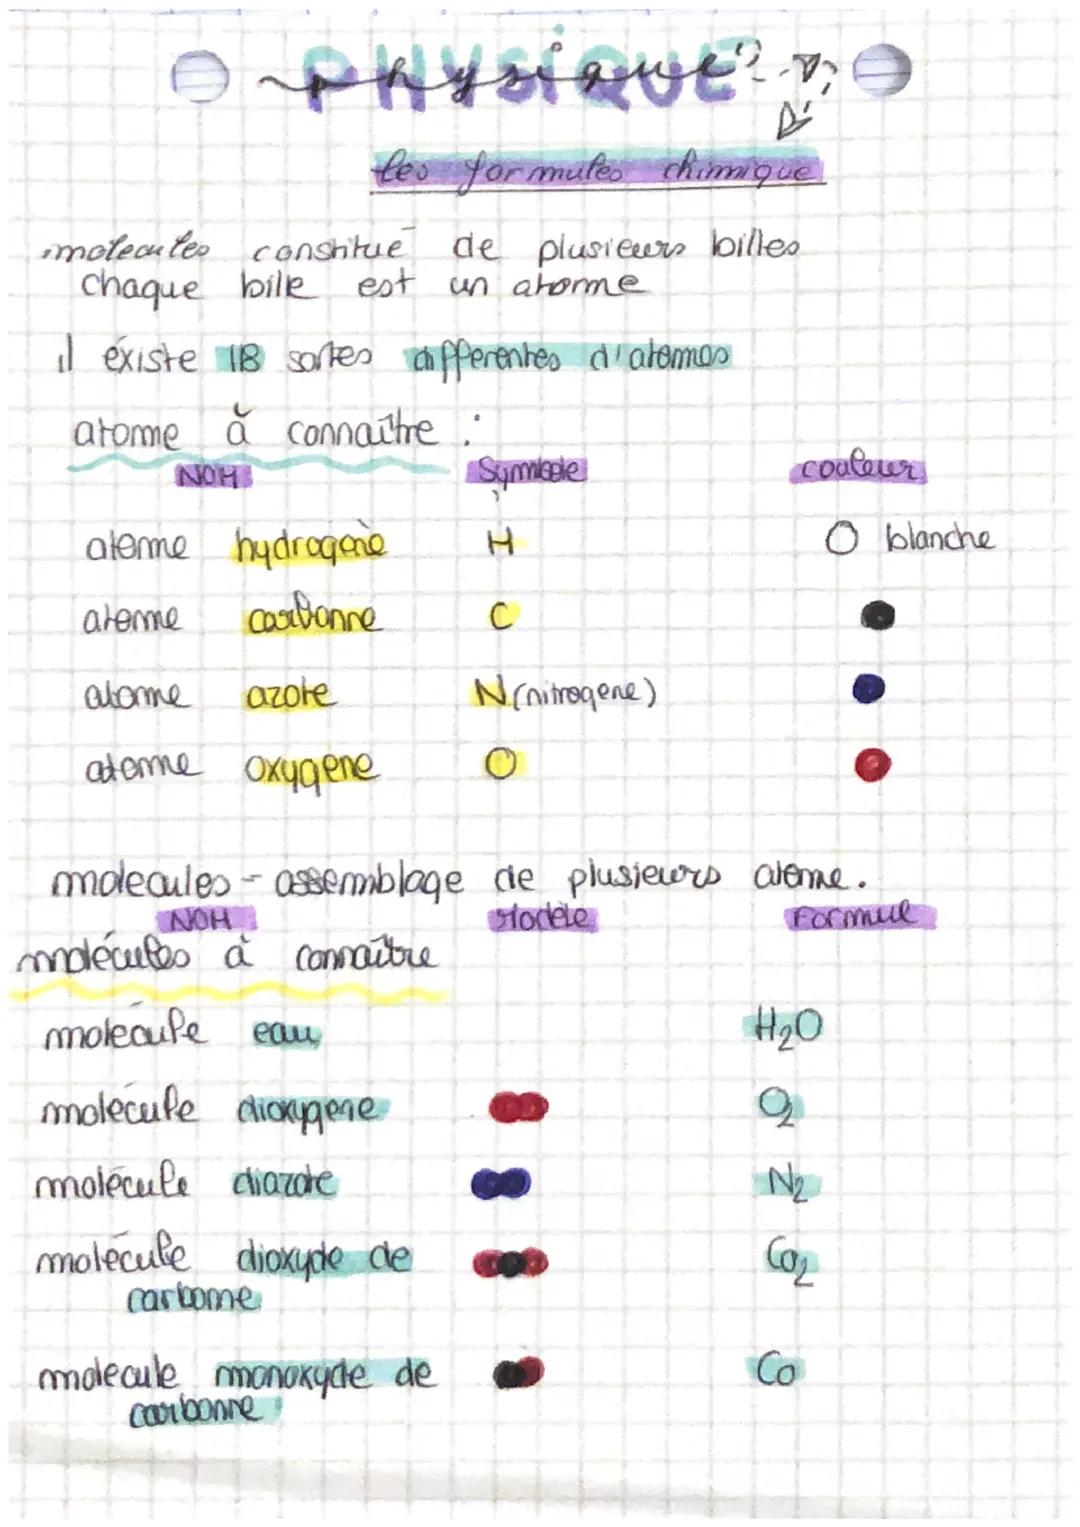 PHYSIQUE
physique
les formules chimique
molecules constitué de plusieurs billes
chaque bille est un atome
il existe 18 sortes differentes d'atomes
atome à connaître :
NOM Symbole couleur
atome hydrogène H blanche
atome carbonne C
atome azote N (nitrogene)
atome oxygene O
molecules - assemblage de plusieurs atome.
NOM Modèle Formul
molécules à connaître
molécule eau H₂O
molécule dioxygene O₂
molécule diazote N₂
molécule dioxyde de Co₂
carbone
molecule monoxyde de Co
carbonne